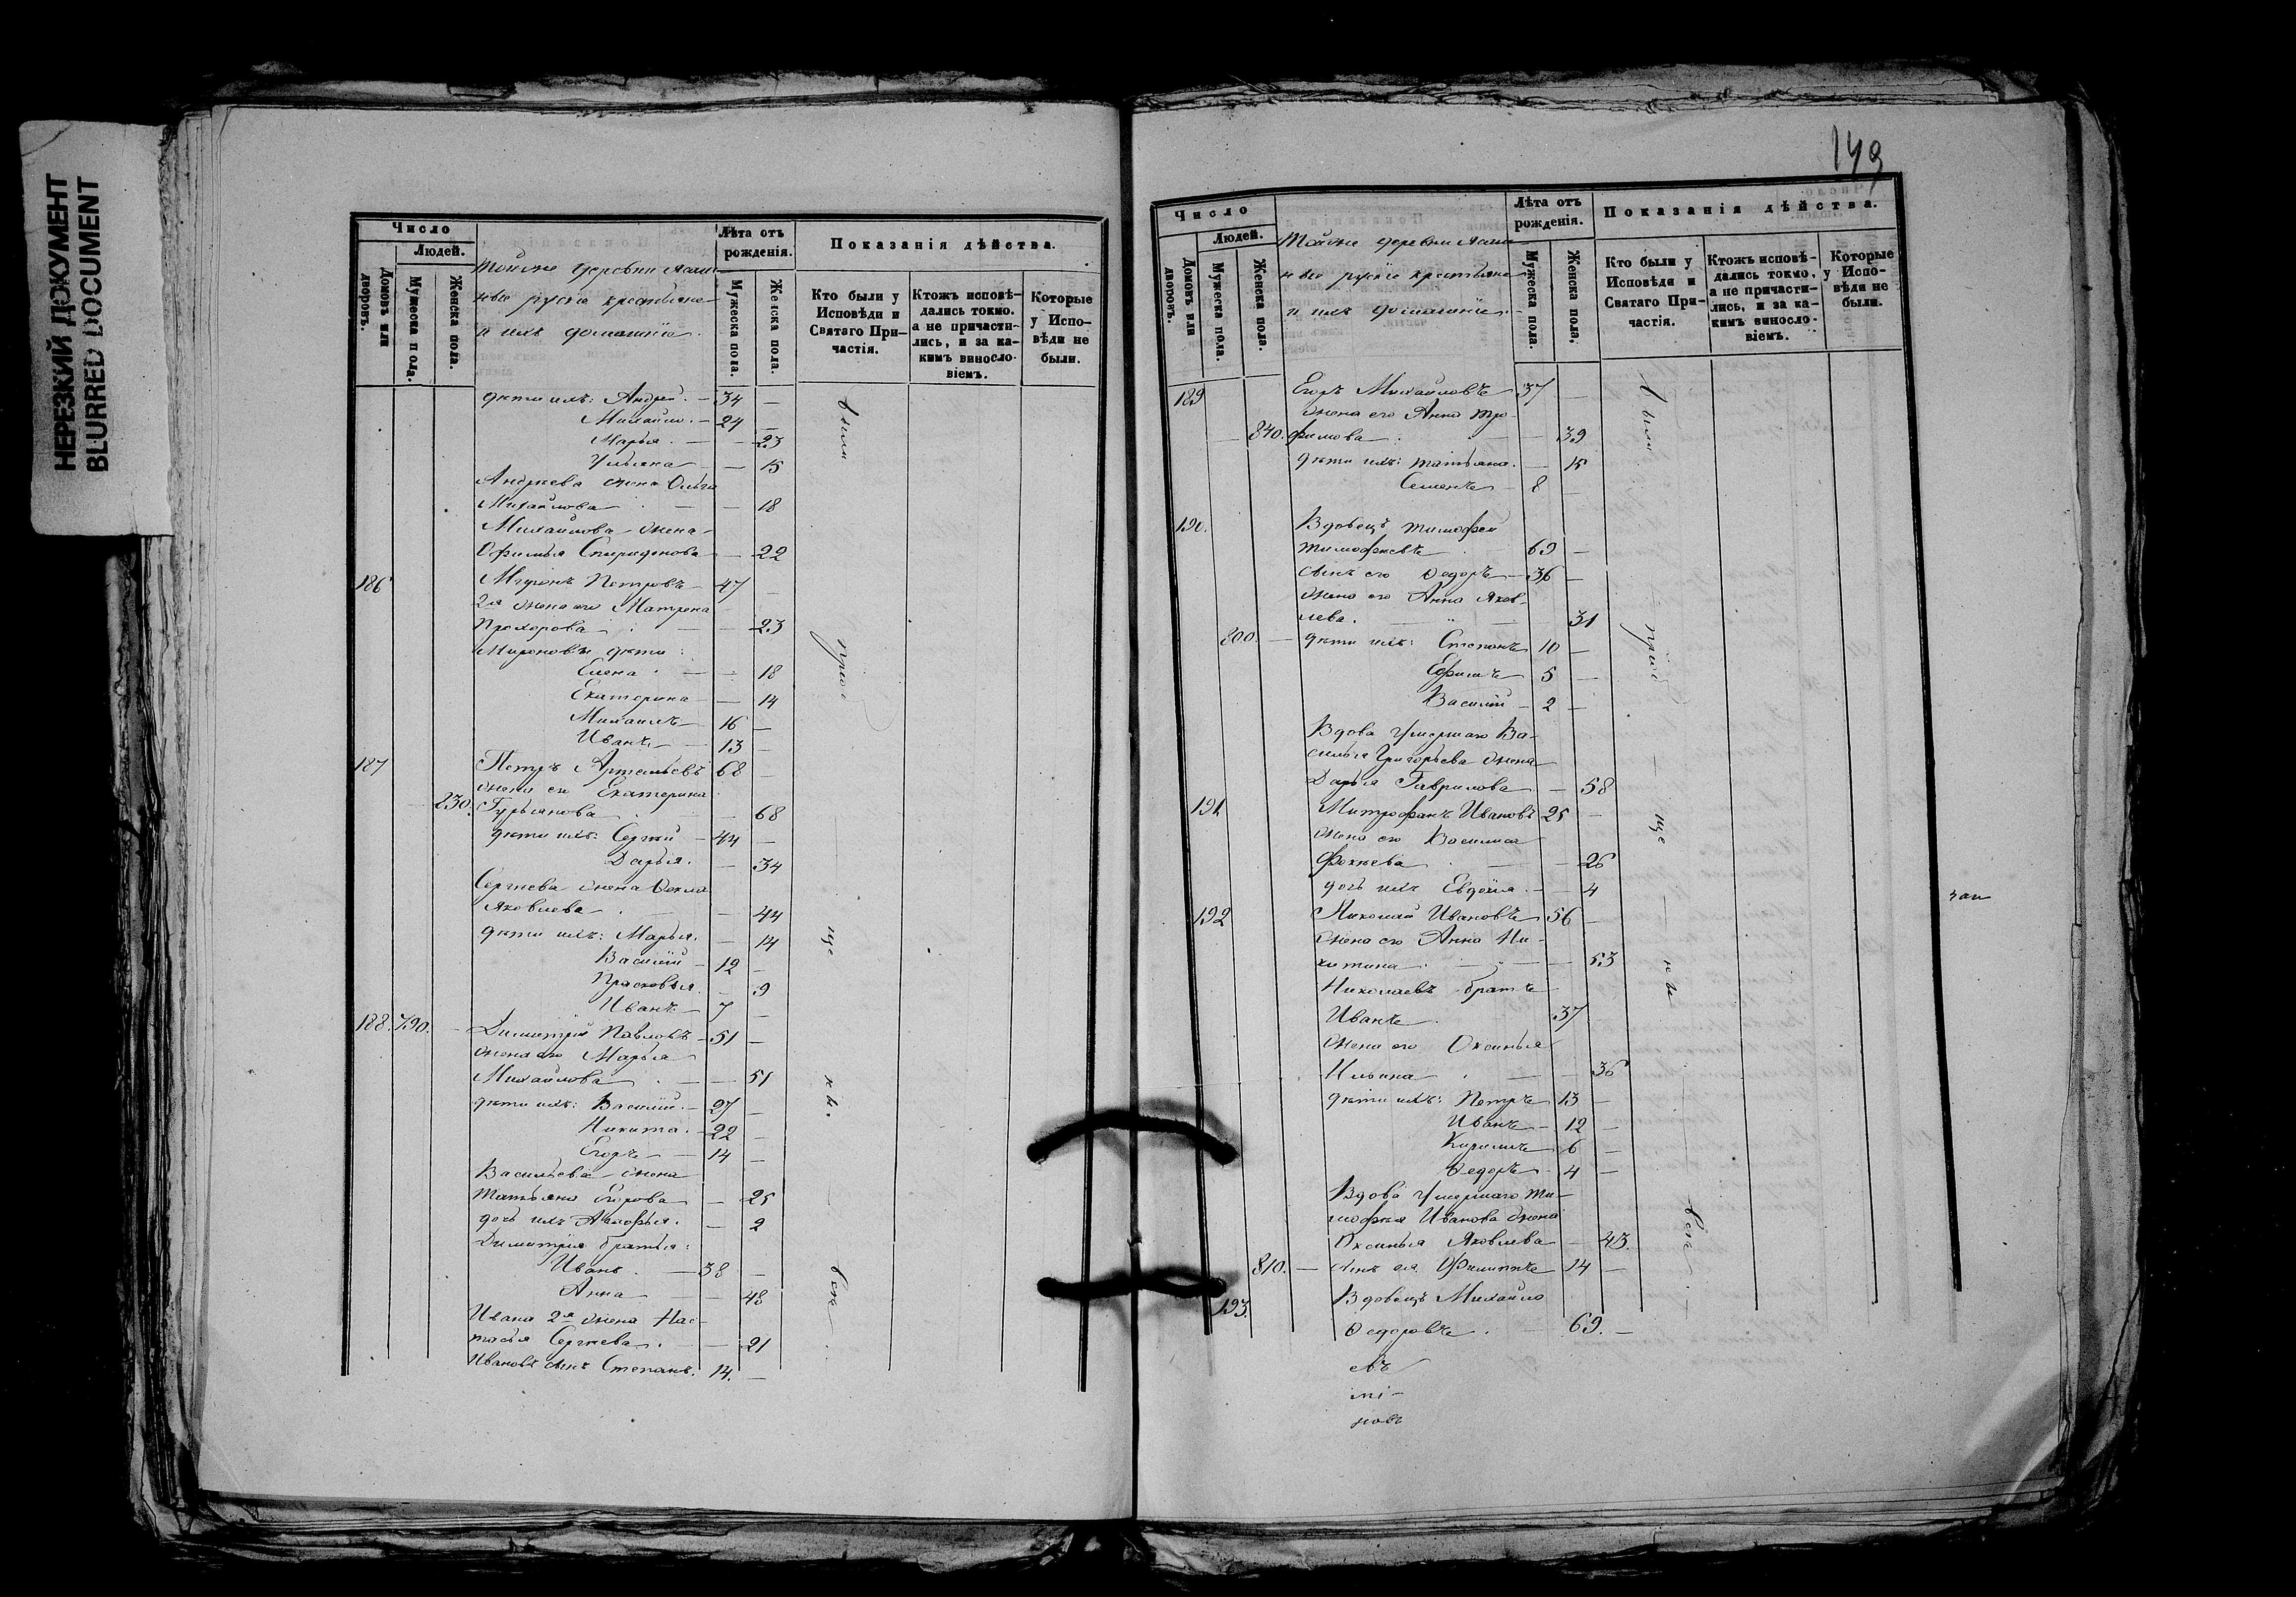 НЕРЕЗКИЙ ДОКУМЕНТ
BLURRED DOCUMENT
Число
Людей.
Домовъ или дворовъ.
Мужеска пола.
Женска пола.
Тойже деревни
руские крестьяне
и ихъ домашніе.
Лѣта отъ рожденія.
Мужеска пола.
Женска пола.
Показанія дѣйства.
Кто были у Исповѣди и Святаго При-
частія.
Ктожъ исповѣ-
дались токмо.
а не причасти-
лись, и за ка-
кимъ винosло-
віемъ.
Которые у Испо-
вѣди не были.
дѣти ихъ: Андрей. — 34 —
Михайло. — 24 —
Марья. — — 23
Ульяна — 15
Андреева жена Ольга
Михайлова — — 18
Михайлова жена
Офимья Спиридонова — 22
186 Миронъ Петровъ — 47 —
2я жена его Матрена
Прохорова — — 23
Мироновы дѣти:
Елена — — 18
Екатерина — 14
Михаилъ — 16 —
Иванъ — 13 —
187 Петръ Артемьевъ 68 —
жена ег Екатерина
230. Гурьянова — 68
дѣти ихъ: Сергѣй — 44 —
Дарья. — 34
Сергѣева жена Фекла
Яковлева — 44
дѣти ихъ: Марья. — 14
Василій — 12 —
Прасковья. — 9
Иванъ — 7 —
188. 790. — Димитрій Павловъ — 51 —
жена его Марья
Михайлова — — 51
дѣти ихъ: Василій. — 27 —
Никита. — 22 —
Егоръ — 14 —
Васильева жена
Татьяна Егорова — 25
дочь ихъ — 2
Димитрія братья:
Иванъ. — 38 —
Анна — — 48
Ивана 2я жена Нас-
тасья Сергѣева. — — 21
Ивановъ сынъ Степанъ. 14. —
были
прич
ще
ны.
всѣ
149
Число
Людей.
Домовъ или дворовъ.
Мужеска пола.
Женска пола.
Тойже деревни
руские крестьяне
и ихъ домашніе.
Лѣта отъ рожденія.
Мужеска пола.
Женска пола,
Показанія дѣйства.
Кто были у Исповѣди и Святаго При-
частія.
Ктожъ исповѣ-
дались токмо,
а не причасти-
лись, и за ка-
кимъ винosло-
віемъ.
Которые у Испо-
вѣди не были.
189 Егоръ Михайловъ 37 —
жена его Анна Тро-
— 840. фимова — — 39
дѣти ихъ: Татьяна. — 15
Семенъ — 8 —
190. Вдовецъ Тимофей
Тимофеевъ 69 —
сынъ его Федоръ — 36 —
жена его Анна Яков-
лева. — 31
800. — дѣти ихъ: Степанъ 10 —
Ефимъ 5 —
Василій — 2 —
Вдова умершаго Ва-
силья Григорьева жена
Дарья Гаврилова — 58
191 Митрофанъ Ивановъ 25 —
жена его Василиса
Фокѣева — 26
дочь ихъ Евдокія — 4
192 Николай Ивановъ 56 —
жена его Анна Ни-
китина — 53
Николаевъ братъ
Иванъ. 37 —
жена его Оксинья
Ильина — 36
дѣти ихъ: Петръ 13 —
Иванъ — 12 —
Кирилъ 6 —
Федоръ — 4 —
Вдова умершаго Ти-
мофея Иванова жена
Оксинья Яковлева — 43.
810. — сынъ ея Филиппъ 14 —
193. Вдовецъ Михайло
Федоровъ. — 69. —
были
прич
ще
ны
всѣ